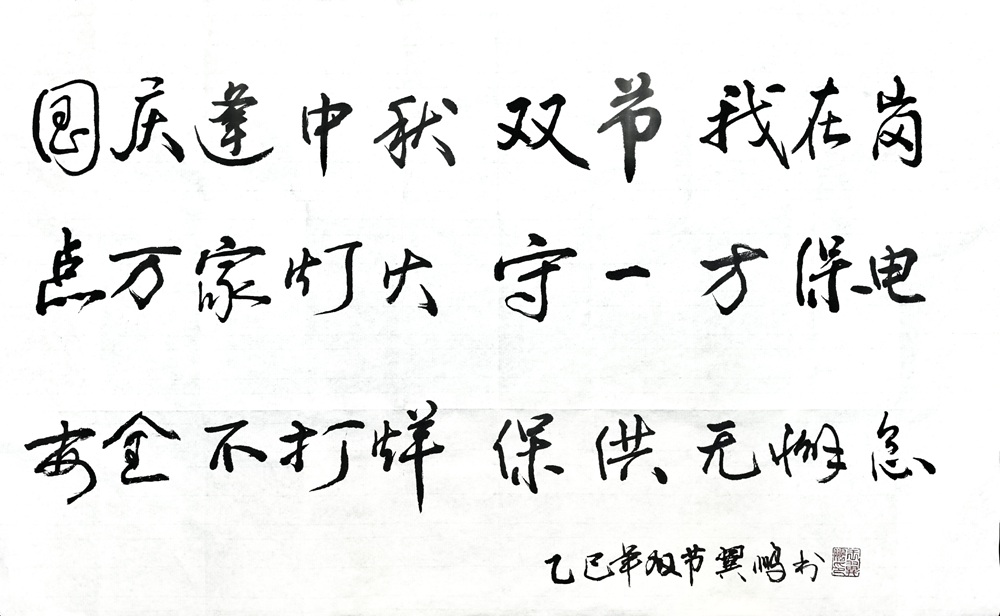 国庆逢中秋 双节我在岗
点万家灯火 守一方保电
安全不打烊 保供无懈怠
乙巳年双节翼鹏书